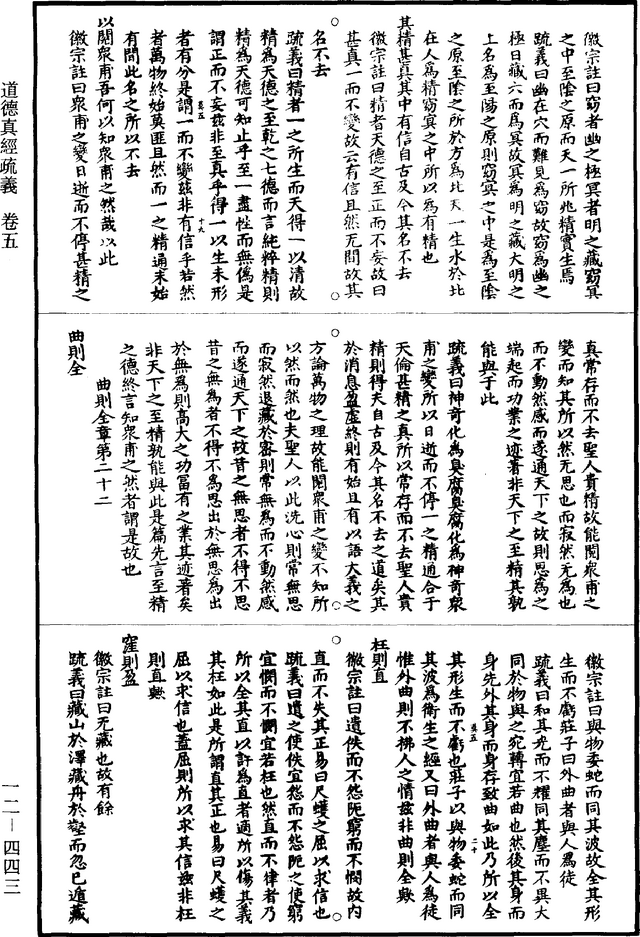 道德真經疏義　卷五
一二—四四三
徽宗註曰窈者幽之極冥者明之藏窈冥
之中至陰之原而天一所兆精實生焉
疏義曰幽在穴而難見為窈故窈為幽之
極日藏六而為冥故冥為明之藏大明之
上名為至陽之原則窈冥之中是為至陰
之原至陰之所於方為北天一生水於北
在人為精窈冥之中所以為有精也
其精甚真其中有信自古及今其名不去
徽宗註曰精者天德之至正而不妄故曰
甚真一而不變故云有信且然无間故其
名不去
疏義曰精者一之所生而天得一以清故
精為天德之至乾之七德而言純粹精則
精為天德可知止乎至一盡性而無偽是
謂正而不妄茲非至真乎得一以生未形
者有分是謂一而不變茲非有信乎若然
者萬物終始莫匪且然而一之精通未始
有間此名之所以不去
以閱衆甫吾何以知衆甫之然哉以此
徽宗註曰衆甫之變日逝而不停甚精之
真常存而不去聖人貴精故能閱衆甫之
變而知其所以然无思也而寂然无為也
而不動然感而遂通天下之故則思為之
端起而功業之迹著非天下之至精其孰
能與于此
疏義曰神奇化為臭腐臭腐化為神奇衆
甫之變所以日逝而不停一之精通合于
天倫甚精之真所以常存而不去聖人貴
精則得夫自古及今其名不去之道矣其
於消息盈虛終則有始且有以語大義之
方論萬物之理故能閱衆甫之變不知所
以然而然也夫聖人以此洗心則常無思
而寂然退藏於密則常無為而不動然感
而遂通天下之故昔之無思者不得不思
昔之無為者不得不為思出於無思為出
於無為則高大之功冨有之業其迹著矣
非天下之至精孰能與此是篇先言至精
之德終言知衆甫之然者謂是故也
曲則全章第二十二
曲則全
徽宗註曰與物委蛇而同其波故全其形
生而不虧莊子曰外曲者與人為徒
疏義曰和其光而不耀同其塵而不異大
同於物與之宛轉宜若曲也然後其身而
身先外其身而身存致曲如此乃所以全
其形生而不虧也莊子以與物委蛇而同
其波為衛生之經又曰外曲者與人為徒
惟外曲則不拂人之情茲非曲則全歟
枉則直
徽宗註曰遺佚而不怨阨窮而不憫故内
直而不失其正易曰尺蠖之屈以求信也
疏義曰遺之使佚宜怨而不怨阨之使窮
宜憫而不憫宜若枉也然直而不律者乃
所以全其直以訐為直者適所以傷其義
其枉如此是所謂直其正也易曰尺蠖之
屈以求信也蓋屈則所以求其信茲非枉
則直歟
窪則盈
徽宗註曰无藏也故有餘
疏義曰藏山於澤藏舟於壑而忽已遁藏